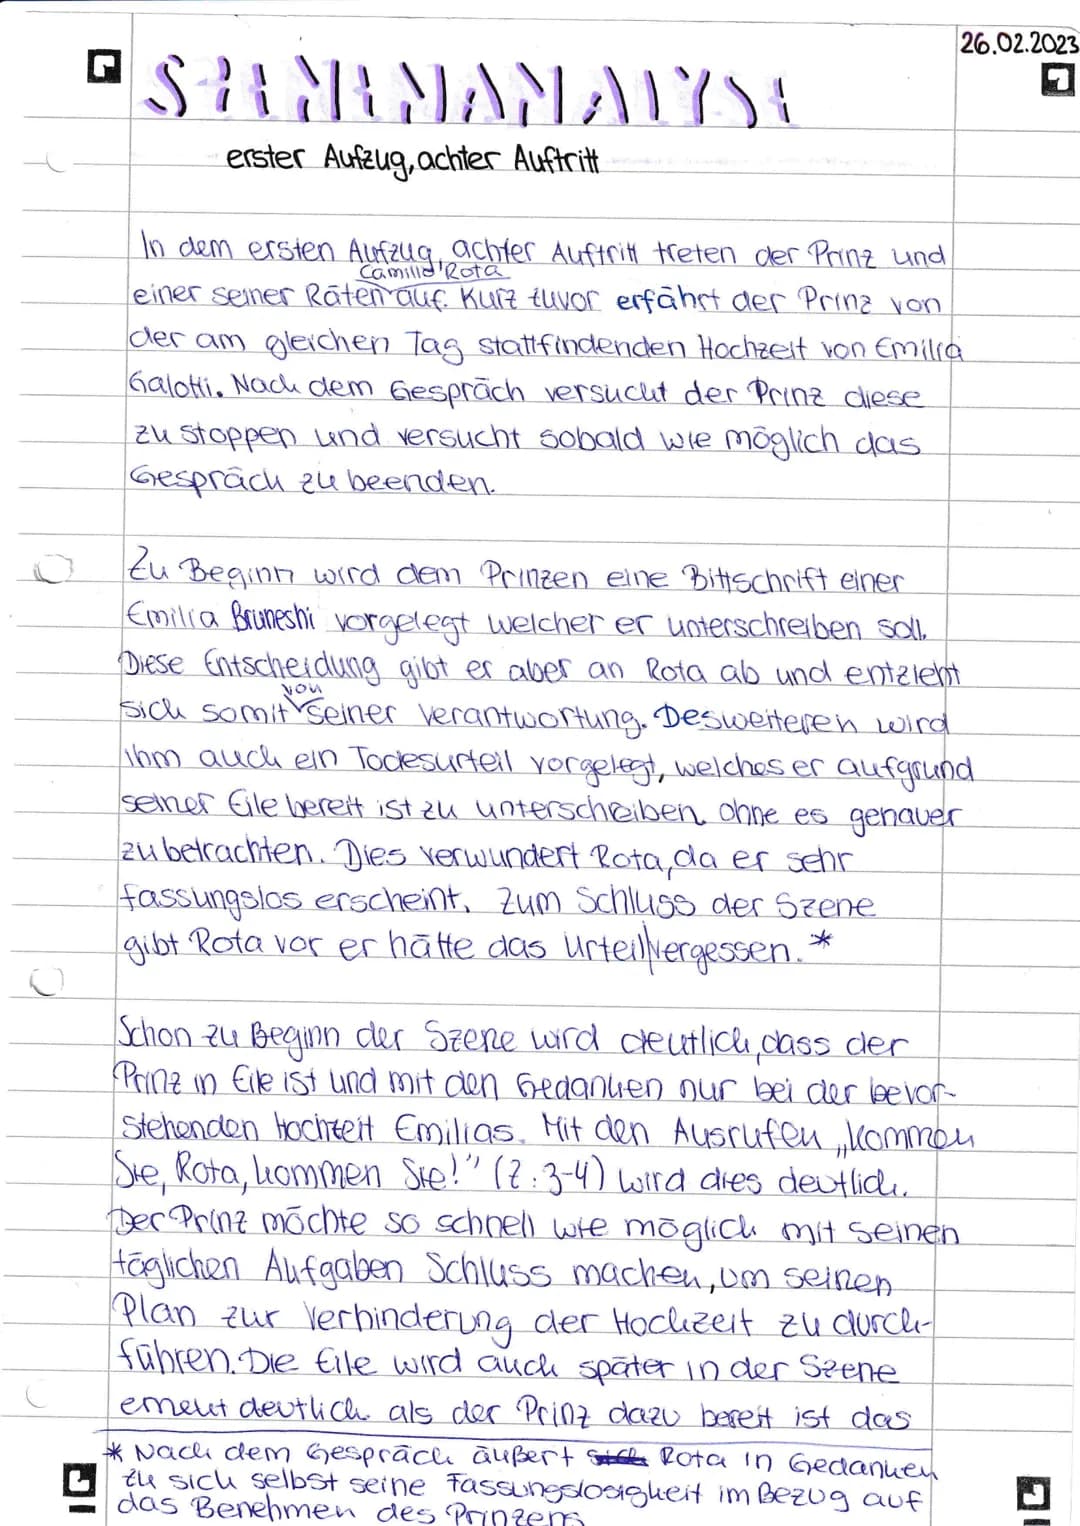 26.02.2023
SZENENANALYSE
erster Aufzug, achter Auftritt
In dem ersten Aufzug, achter Auftritt treten der Prinz und
Camillo Rota
einer seiner Räten auf. Kurz zuvor erfährt der Prinz von
der am gleichen Tag stattfindenden Hochzeit von Emilia
Galotti. Nach dem Gespräch versucht der Prinz diese
zu stoppen und versucht sobald wie möglich das
Gespräch zu beenden.
Zu Beginn wird dem Prinzen eine Bittschrift einer
Emilia Bruneshi vorgelegt welcher er unterschreiben soll.
Diese Entscheidung gibt er aber an Rota ab und entzieht
sich somit von seiner Verantwortung. Desweiteren wird
ihm auch ein Todesurteil vorgelegt, welches er aufgrund
seiner Eile bereit ist zu unterschreiben ohne es genauer
zu betrachten. Dies verwundert Rota, da er sehr
fassungslos erscheint. Zum Schluss der Szene
gibt Rota vor er hätte das Urteil vergessen. *
Schon zu Beginn der Szene wird deutlich, dass der
Prinz in Eile ist und mit den Gedanken nur bei der bevor-
stehenden Hochzeit Emilias. Mit den Ausrufen „kommen
Sie, Rota, kommen Sie!" (Z. 3-4) wird dies deutlich.
Der Prinz möchte so schnell wie möglich mit seinen
täglichen Aufgaben Schluss machen, um seinen
Plan zur Verhinderung der Hochzeit zu durch-
führen. Die Eile wird auch später in der Szene
erneut deutlich als der Prinz dazu bereit ist das
* Nach dem Gespräch äußert Rota in Gedanken
zu sich selbst seine Fassungslosigkeit im Bezug auf
das Benehmen des Prinzens